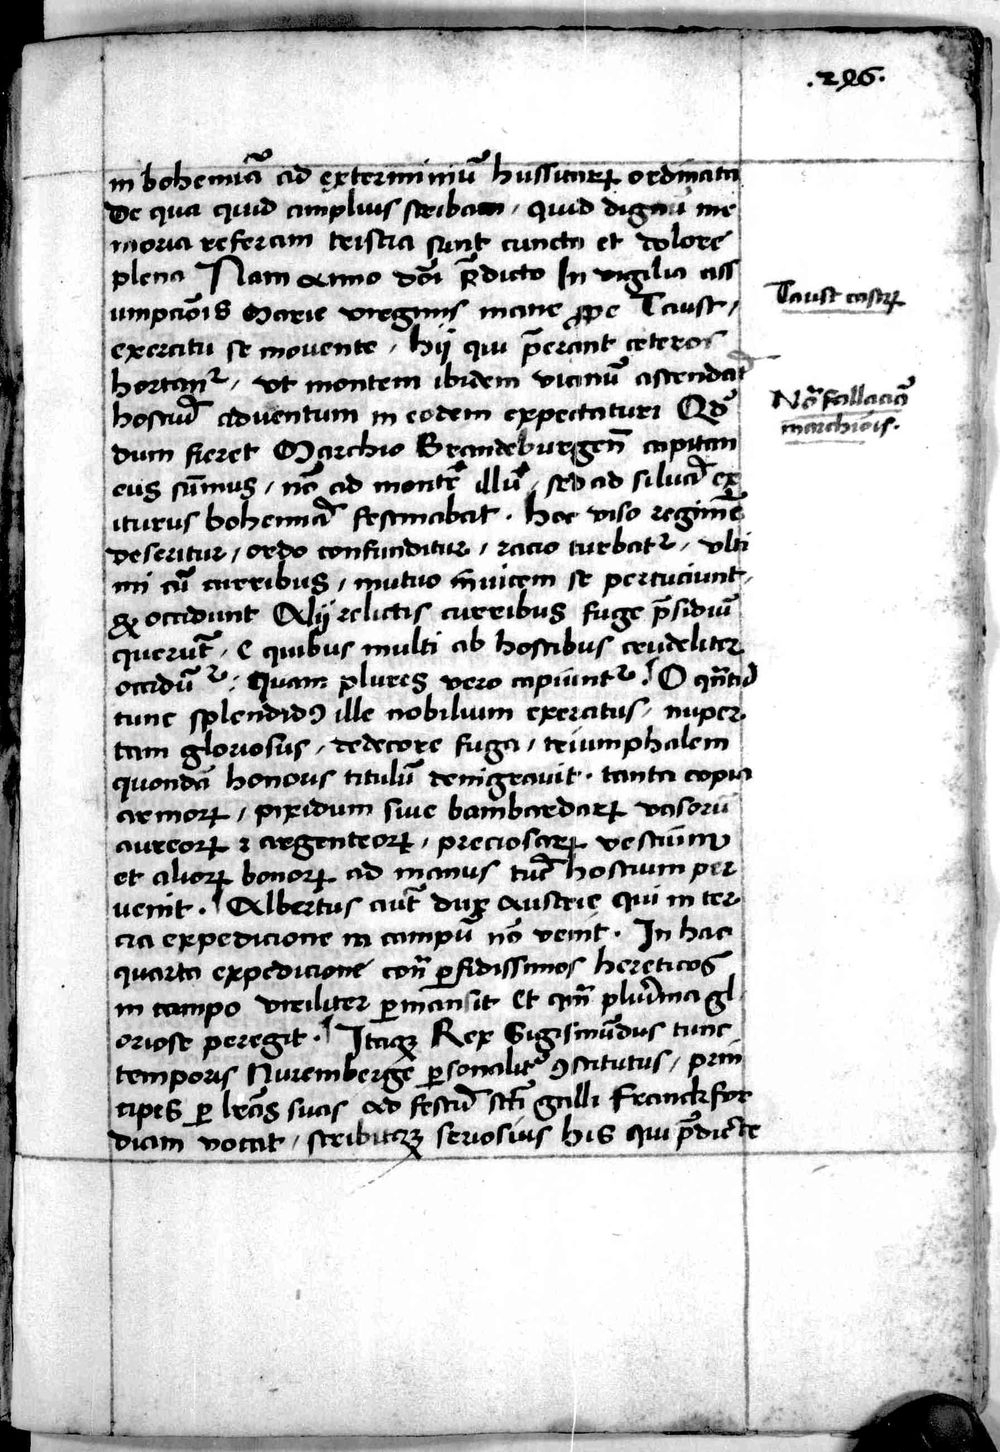 .296.
in bohemiā ad exterminiū hussitarꝝ ordinata
De qua quid amplius scribam, quid dignū me
moria referam tristia sunt cuncta et dolore
plena Nam anno dn̄i p̄dicto In vigilia ass
umpcōis Marie virginis mane ꝓpe Taust,
exercitu se movente, hij qui p̄erant ceteros
hortant᷑, vt montem ibidem vicinū ascendāt
hostiū adventum in eodem expectaturi Qd̄
dum fieret Marchio Brandeburgen̄ capitan
eus sūmus, nō ad montē illū, sed ad siluā ex
iturus bohemiā festinabat. hoc viso regimē
deseritur, ordo confunditur, racio turbat᷑, vlti
mi cū curribus, mutuo īnvicem se pertuciunt,
& occidunt Alij relictis curribus fuge p̄sidiū
querūt, E quibus multi ab hostibus crudeliter
occidūt᷑: Quam plures vero capiunt᷑. O qn̄tū
tunc splendidꝰ ille nobilium exercitus, nuper
tam gloriosus, dedecore fuga, triumphalem
quondā honoris titulū denigravit. tanta copia
armorꝝ, pixidum sive bambardarꝝ vasorū
aureorꝝ ⁊ argenteorꝝ, preciosarꝝ vestiūm
et aliorꝝ bonorꝝ ad manus tūc hostium per
venit. Albertus aut̄ dux Austrie qui in ter
cia expedicione in campū nō venit. In hac
quarta expedicione con̄ ꝑfidissimos hereticos
in campo viriliter ꝑmansit Et qm̄ plurima gl
oriose peregit. Itaqꝫ Rex Sigismūdus tunc
temporis Nuremberge ꝑsonalit᷑ ꝯstitutus, prin
cipes ꝑ lr̄as suas ad festū sct̄i galli Franckfor
diam vocat, scribitqꝫ seriosius his qui p̄dicte
Taust castrꝝ
Nō fallaciā
marchiōis.